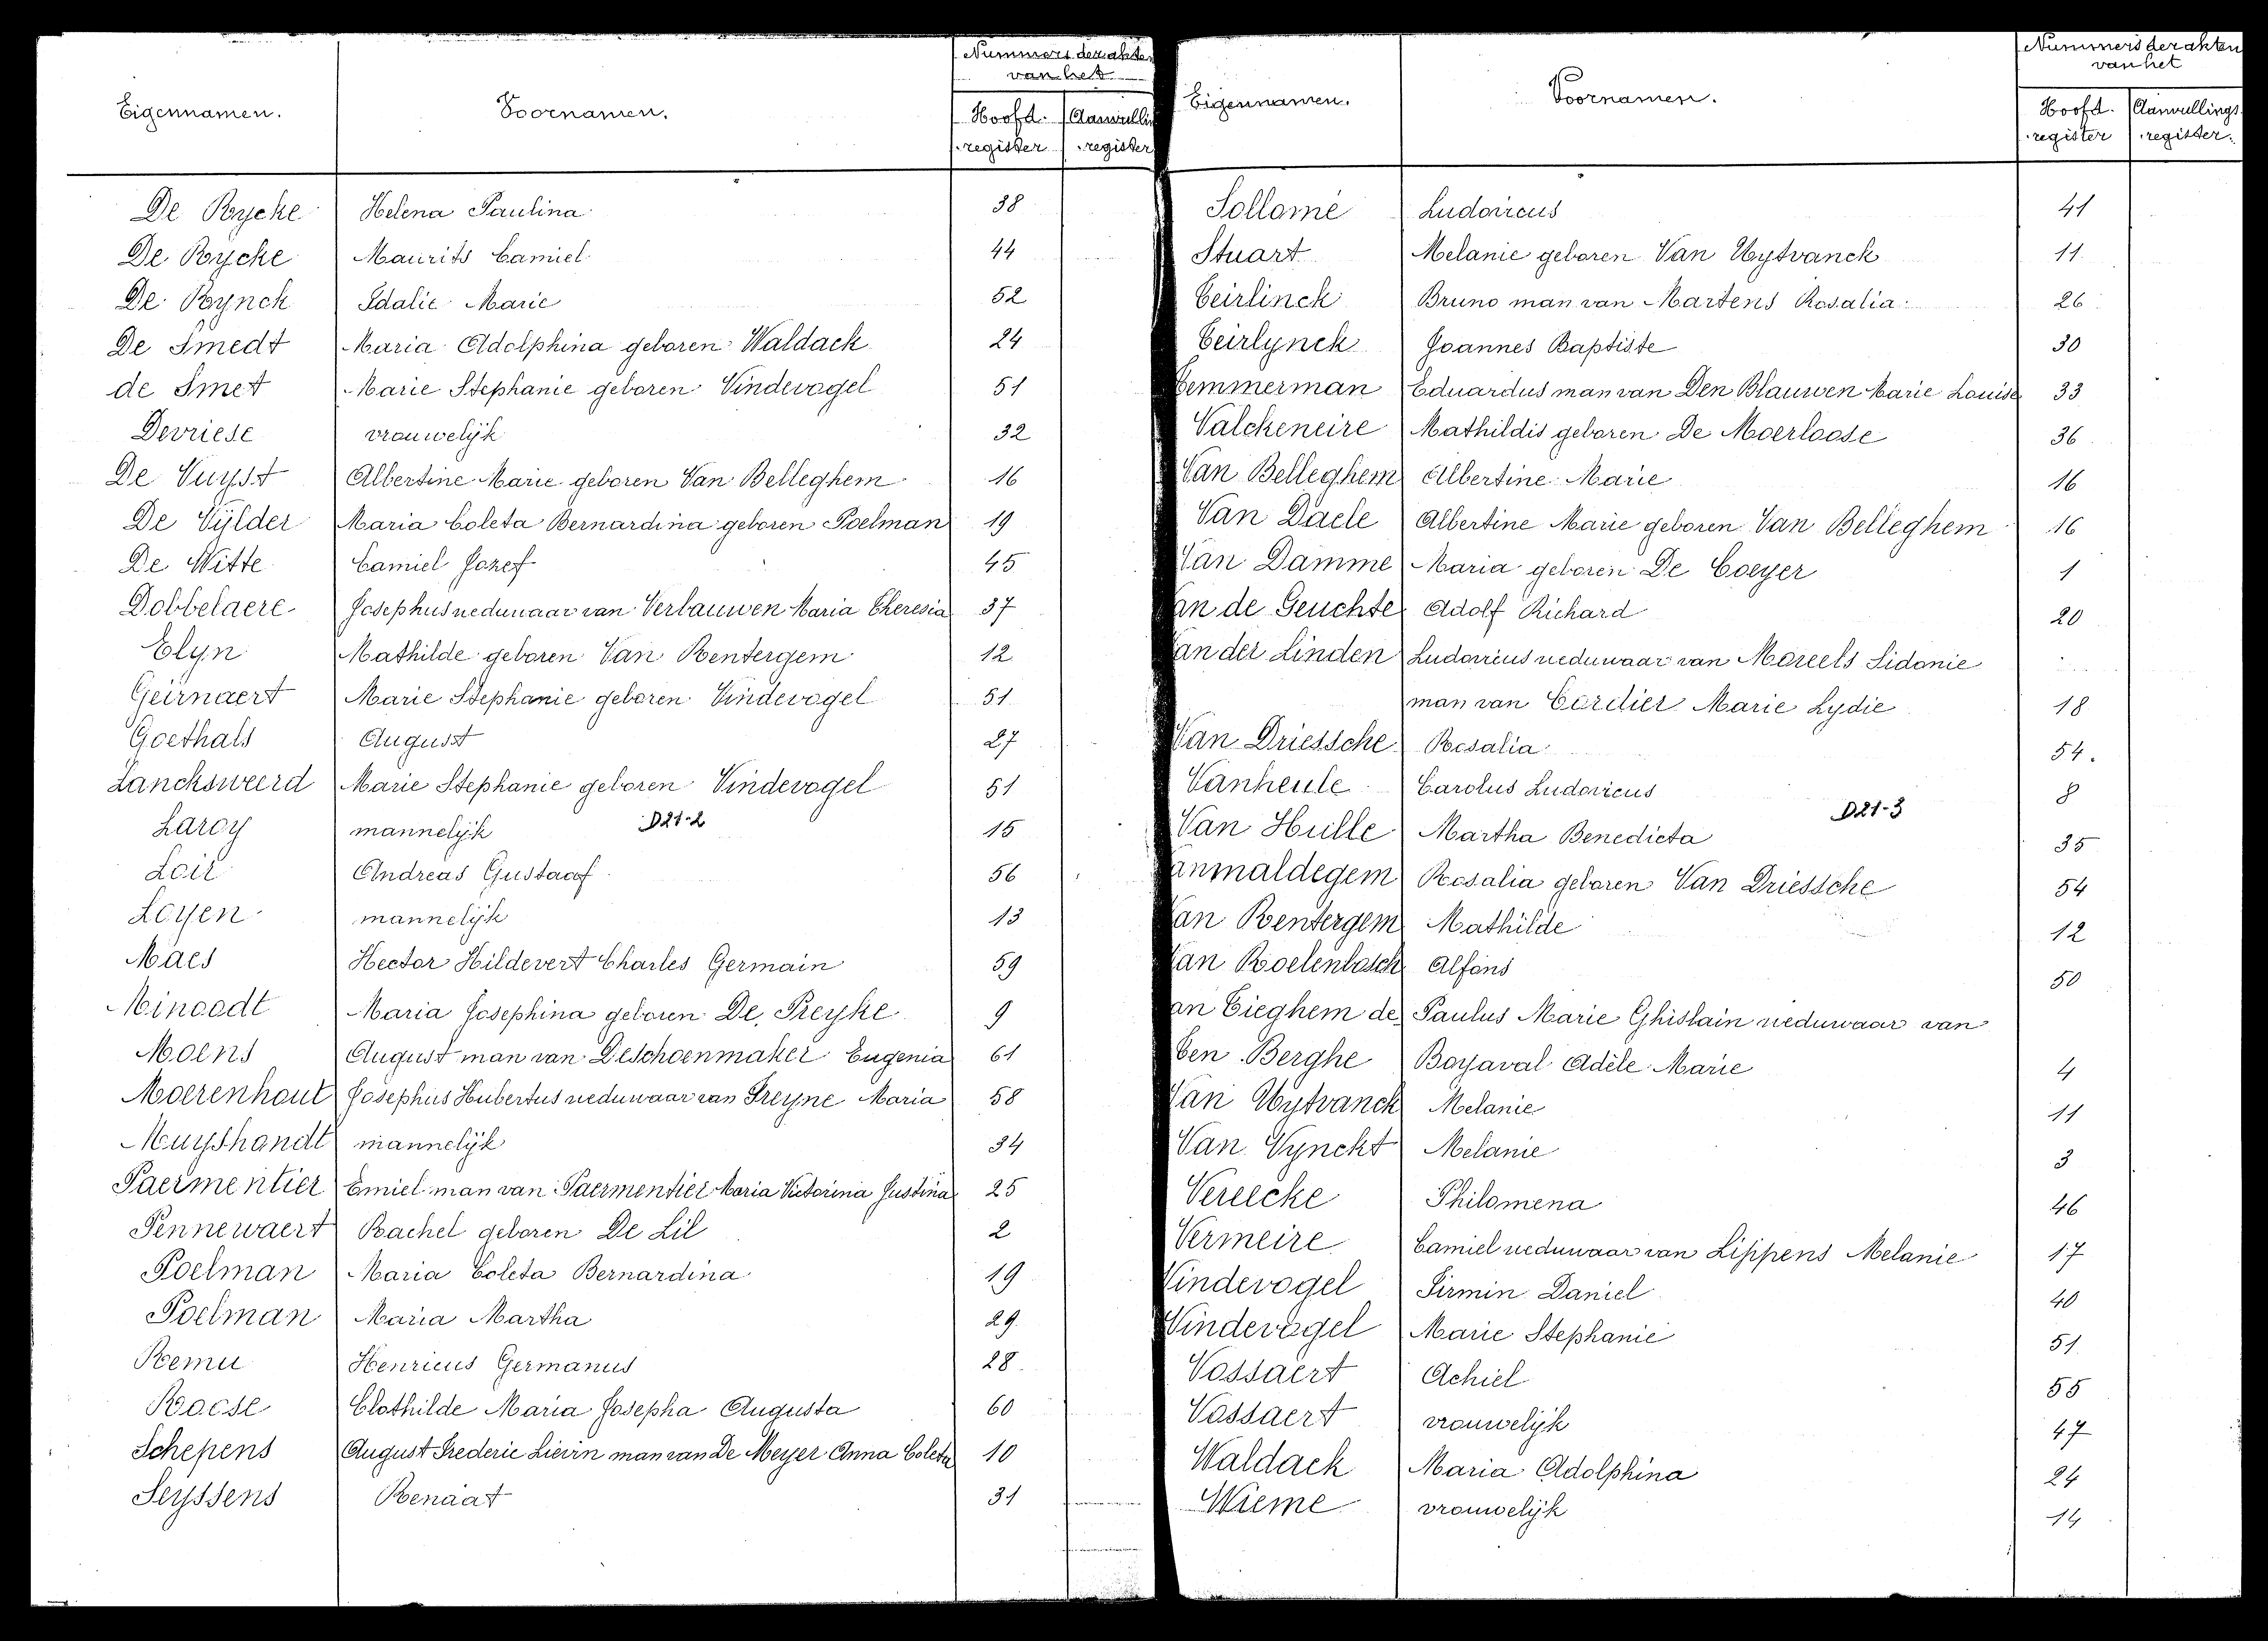 Eigennamen. Voornamen. Nummers der akten van het
Hoofd. register register
De Rycke Helena Paulina 38
De Rycke Maurits Camiel 44
De Rynck Idalie Marie 52
De Smedt Maria Adolphina geboren Waldack 24
de Smet Marie Stephanie geboren Vindevogel 51
Devriese vrouwelijk 32
De Vuyst Albertine Marie geboren Van Belleghem 16
De Vylder Maria Coleta Bernardina geboren Poelman 19
De Witte Camiel Jozef 45
Dobbelaere Josephus weduwaar van Verlauwen Maria Theresia 37
Elyn Mathilde geboren Van Rentergem 12
Geirnaert Marie Stephanie geboren Vindevogel 51
Goethals August 27
Lancksweerd Marie Stephanie geboren Vindevogel 51
Laroy mannelijk D21-2 15
Loir Andreas Gustaaf 56
Loyen mannelijk 13
Maes Hector Hildevert Charles Germain 59
Minoodt Maria Josephina geboren De Preyke 9
Moens August man van Deschoenmaker Eugenia 61
Moerenhout Josephus Hubertus weduwaar van Freyne Maria 58
Muyshondt mannelijk 34
Paermentier Emiel man van Paermentier Maria Victorina Justina 25
Pennewaert Rachel geboren De Lil 2
Poelman Maria Coleta Bernardina 19
Poelman Maria Martha 29
Remu Henricus Germanus 28
Roose Clothilde Maria Josepha Augusta 60
Schepens August Frederic Lievin man van De Meyer Anna Coleta 10
Seyssens Renaat 31
Eigennamen. Voornamen. Nummers der akten van het
Hoofd. register Aanvullings register.
Sollomé Ludovicus 41
Stuart Melanie geboren Van Uytvanck 11
Teirlinck Bruno man van Martens Rosalia 26
Teirlynck Joannes Baptiste 30
Temmerman Eduardus man van Den Blauwen Marie Louise 33
Valckeneire Mathildis geboren De Moerloose 36
Van Belleghem Albertine Marie 16
Van Daele Albertine Marie geboren Van Belleghem 16
Van Damme Maria geboren De Coeyer 1
Van de Geuchte Adolf Richard 20
Van der Linden Ludovicus weduwaar van Moreels Sidonie
man van Cordier Marie Lydie 18
Van Driessche Rosalia 54.
Vanheule Carolus Ludovicus 8
D21-3
Van Hulle Martha Benedicta 35
Vanmaldegem Rosalia geboren Van Driessche 54
Van Rentergem Mathilde 12
Van Roelenbosch Alfons 50
Van Tieghem de Paulus Marie Ghislain weduwaar van
Ten Berghe Boyaval Adèle Marie 4
Van Uytvanck Melanie 11
Van Vynckt Melanie 3
Vereecke Philomena 46
Vermeire Camiel weduwaar van Lippens Melanie 17
Vindevogel Firmin Daniel 40
Vindevogel Marie Stephanie 51
Vossaert Achiel 55
Vossaert vrouwelijk 47
Waldack Maria Adolphina 24
Wieme vrouwelijk 14